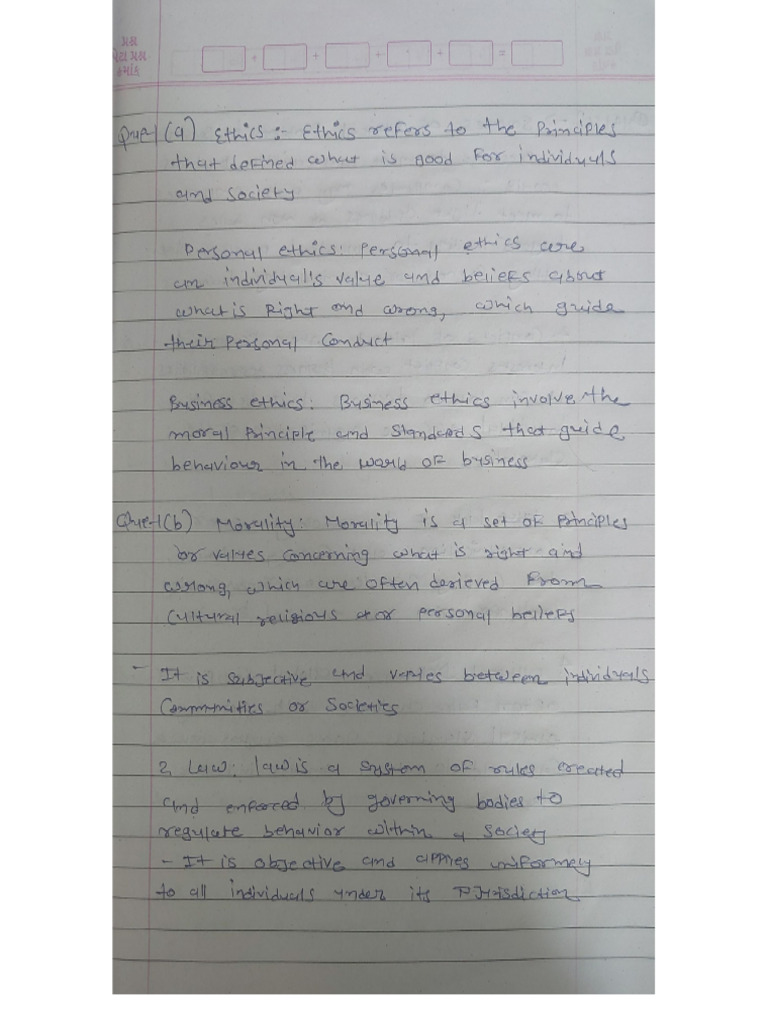 પ્રશ્ન
પેટા પ્રશ્ન
ક્રમાંક
+ + + + =
Que-1(a) Ethics :- Ethics refers to the Principles
that defined what is good for individuals
and society
Personal ethics: Personal ethics are
an individual's value and beliefs about
what is Right and wrong, which guide
their Personal Conduct
Business ethics: Business ethics involve the
moral Principle and Standards that guide
behaviour in the world of business
Que-1(b) Morality: Morality is a set of Principles
or values concerning what is right and
wrong, which are often derieved From
Cultural religious or personal beliefs
- It is Subjective and varies between individuals
Communities or Societies
2 Law: law is a system of rules created
and enforced by governing bodies to
regulate behavior within a society
- It is objective and applies uniformely
to all individuals under its Jurisdiction